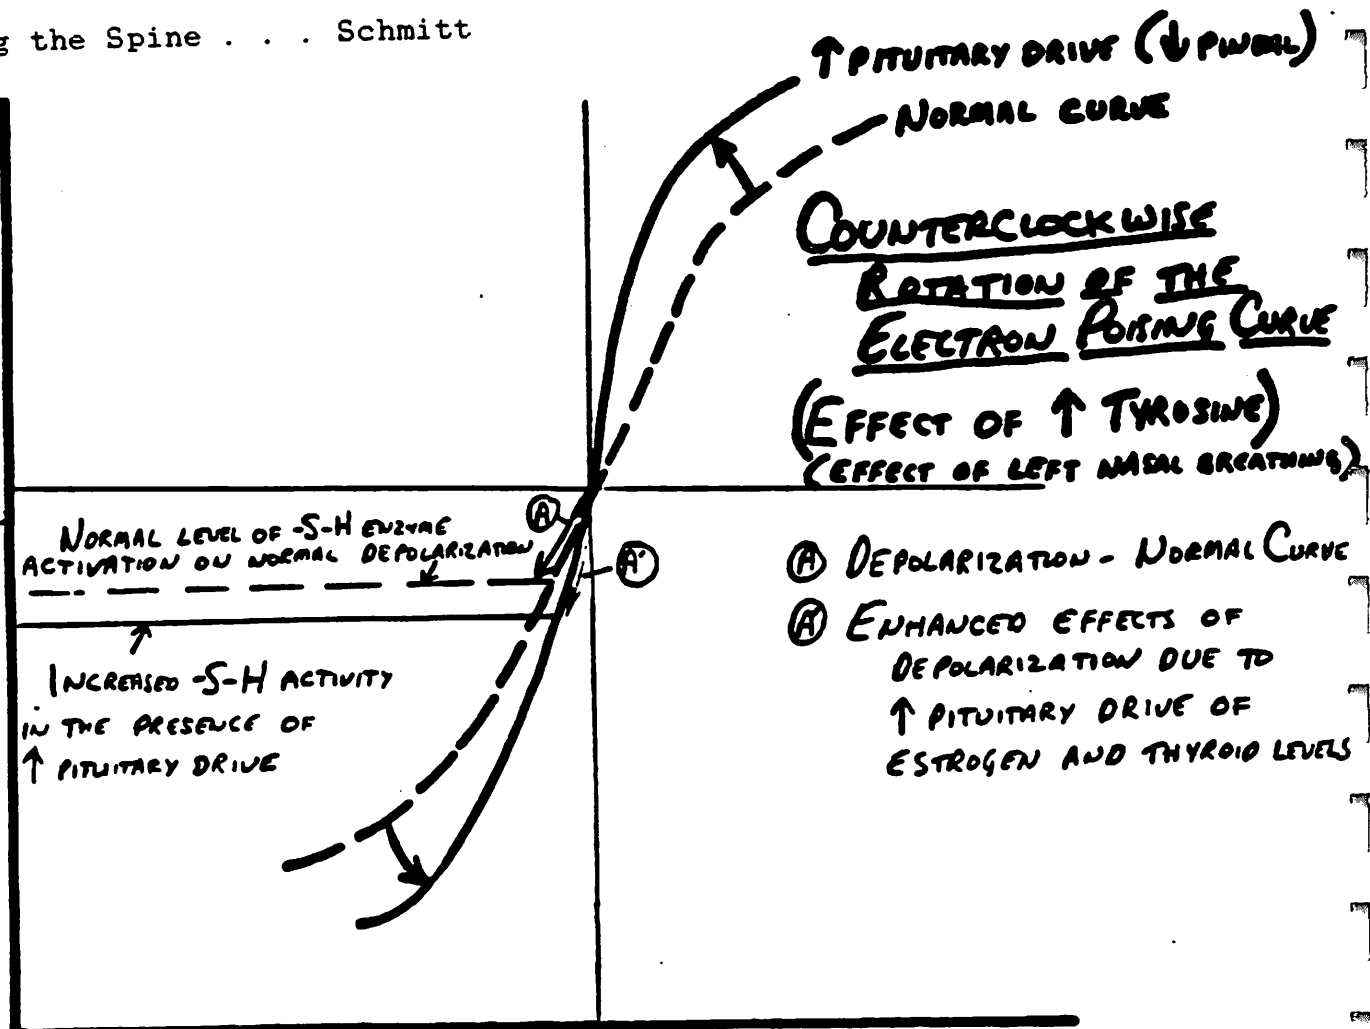 g the Spine . . . Schmitt
↑ PITUITARY DRIVE (↓ PINEAL)
NORMAL CURVE
COUNTERCLOCKWISE
ROTATION OF THE
ELECTRON POISING CURVE
(EFFECT OF ↑ TYROSINE)
(EFFECT OF LEFT NASAL BREATHING)
NORMAL LEVEL OF -S-H ENZYME
ACTIVATION ON NORMAL DEPOLARIZATION
A
A'
INCREASED -S-H ACTIVITY
IN THE PRESENCE OF
↑ PITUITARY DRIVE
A DEPOLARIZATION - NORMAL CURVE
A' ENHANCED EFFECTS OF
DEPOLARIZATION DUE TO
↑ PITUITARY DRIVE OF
ESTROGEN AND THYROID LEVELS